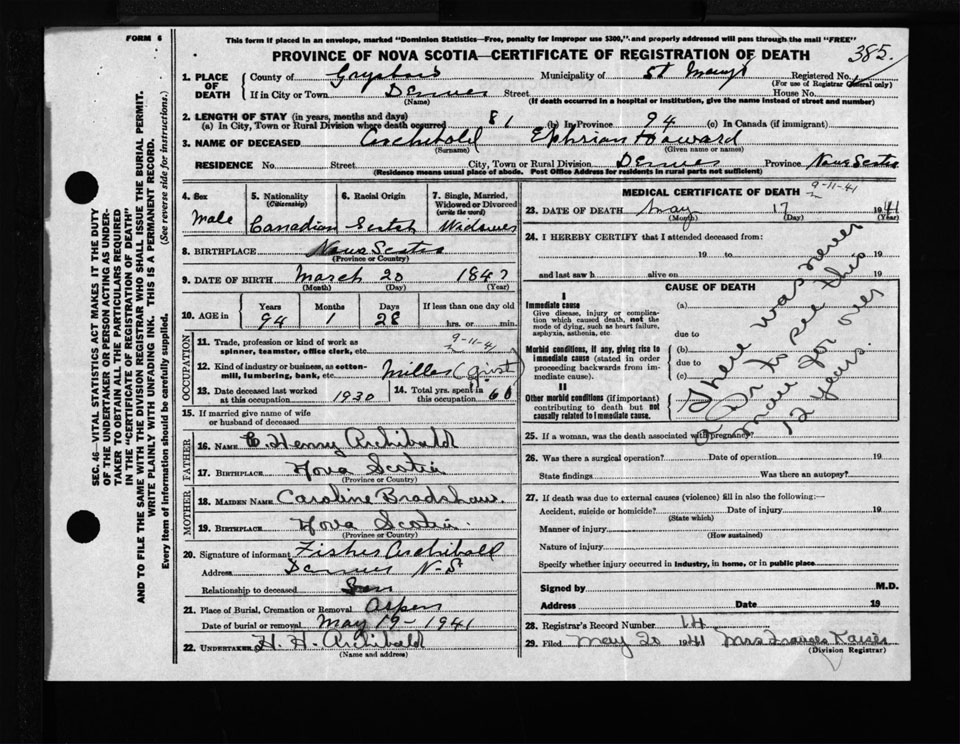 FORM 6
This form if placed in an envelope, marked "Dominion Statistics—Free, penalty for improper use $300," and properly addressed will pass through the mail "FREE"
PROVINCE OF NOVA SCOTIA—CERTIFICATE OF REGISTRATION OF DEATH
385
SEC. 46—VITAL STATISTICS ACT MAKES IT THE DUTY
OF THE UNDERTAKER OR PERSON ACTING AS UNDER-
TAKER TO OBTAIN ALL THE PARTICULARS REQUIRED
IN THE "CERTIFICATE OF REGISTRATION OF DEATH"
AND TO FILE THE SAME WITH THE DIVISION REGISTRAR WHO SHALL ISSUE THE BURIAL PERMIT.
WRITE PLAINLY WITH UNFADING INK. THIS IS A PERMANENT RECORD.
Every item of information should be carefully supplied. (See reverse side for instructions.)
1. PLACE OF DEATH
County of Guysboro Municipality of St Mary's Registered No.
(For use of Registrar General only)
If in City or Town Denver Street House No.
(Name) (If death occurred in a hospital or institution, give the name instead of street and number)
2. LENGTH OF STAY (in years, months and days)
(a) In City, Town or Rural Division where death occurred 81 (b) In Province 94 (c) In Canada (if immigrant)
3. NAME OF DECEASED Archibold Ephrian Howard
(Surname) (Given name or names)
RESIDENCE No. Street City, Town or Rural Division Denver Province Nova Scotia
(Residence means usual place of abode. Post Office Address for residents in rural parts not sufficient)
4. Sex
Male
5. Nationality
(Citizenship)
Canadian
6. Racial Origin
Scotch
7. Single, Married,
Widowed or Divorced
(write the word)
Widower
8. BIRTHPLACE Nova Scotia
(Province or Country)
9. DATE OF BIRTH March 20 1847
(Month) (Day) (Year)
10. AGE in
Years Months Days If less than one day old
94 1 28 hrs. or min.
OCCUPATION
11. Trade, profession or kind of work as
spinner, teamster, office clerk, etc.
9-11-41
12. Kind of industry or business, as cotton-
mill, lumbering, bank, etc. Miller (Grist)
13. Date deceased last worked
at this occupation 1930
14. Total yrs. spent in
this occupation 60
15. If married give name of wife
or husband of deceased
FATHER
16. NAME E. Henry Archibald
17. BIRTHPLACE Nova Scotia
(Province or Country)
MOTHER
18. MAIDEN NAME Caroline Bradshaw.
19. BIRTHPLACE Nova Scotia.
(Province or Country)
20. Signature of informant Fisher Archibald
Address Denver N-S
Relationship to deceased Son
21. Place of Burial, Cremation or Removal Aspen
Date of burial or removal May 19-1941
22. UNDERTAKER H. H. Archibald
(Name and address)
MEDICAL CERTIFICATE OF DEATH
9-11-41
23. DATE OF DEATH May 17 1941
(Month) (Day) (Year)
24. I HEREBY CERTIFY that I attended deceased from:
19 to 19
and last saw h alive on 19
CAUSE OF DEATH
I
Immediate cause
Give disease, injury or complica-
tion which caused death, not the
mode of dying, such as heart failure,
asphyxia, asthenia, etc.
(a)
due to
Morbid conditions, if any, giving rise to
immediate cause (stated in order
proceeding backwards from im-
mediate cause).
(b)
due to
(c)
II
Other morbid conditions (if important)
contributing to death but not
causally related to immediate cause.
There was never
a Dr to see this
man for over
12 years.
25. If a woman, was the death associated with pregnancy?
26. Was there a surgical operation? Date of operation 19
State findings Was there an autopsy?
27. If death was due to external causes (violence) fill in also the following:—
Accident, suicide or homicide? Date of injury 19
(State which)
Manner of injury
(How sustained)
Nature of injury
Specify whether injury occurred in industry, in home, or in public place
Signed by M.D.
Address Date 19
28. Registrar's Record Number 14
29. Filed May 20 1941 Mrs Frances Kaiser
(Division Registrar)